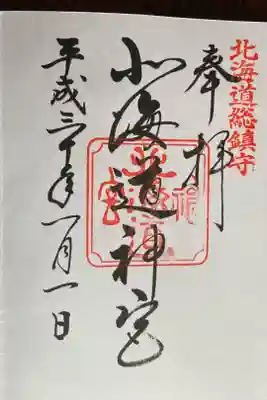 北海道総鎮守
奉拝
北海道神宮
平成三十年一月一日